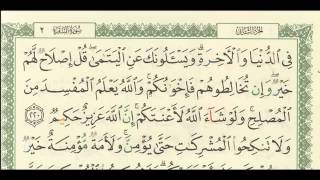 الجزء الثاني
سورة البقرة ٢
فِي الدُّنْيَا وَالْآخِرَةِ ۗ وَيَسْأَلُونَكَ عَنِ الْيَتَامَىٰ ۖ قُلْ إِصْلَاحٌ لَّهُمْ
خَيْرٌ ۖ وَإِن تُخَالِطُوهُمْ فَإِخْوَانُكُمْ ۚ وَاللَّهُ يَعْلَمُ الْمُفْسِدَ مِنَ
الْمُصْلِحِ ۚ وَلَوْ شَاءَ اللَّهُ لَأَعْنَتَكُمْ ۚ إِنَّ اللَّهَ عَزِيزٌ حَكِيمٌ ٢٢٠
وَلَا تَنكِحُوا الْمُشْرِكَاتِ حَتَّىٰ يُؤْمِنَّ ۚ وَلَأَمَةٌ مُّؤْمِنَةٌ خَيْرٌ